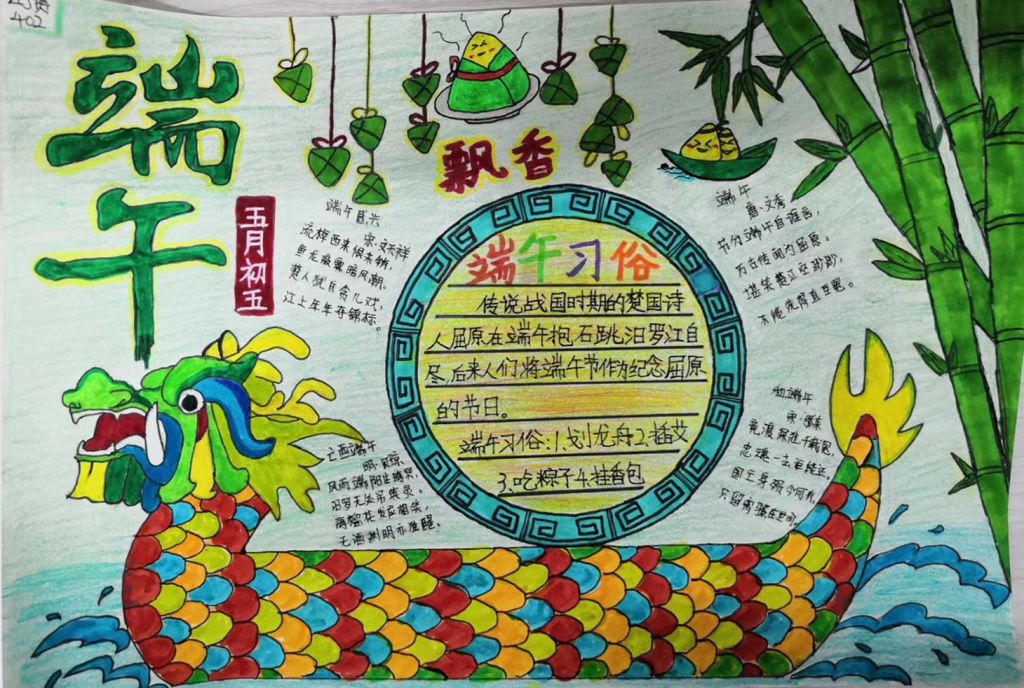 402
端午
五月初五
飘香
端午习俗
传说战国时期的楚国诗
人屈原在端午抱石跳汨罗江自
尽,后来人们将端午节作为纪念屈原
的节日。
端午习俗:1.划龙舟2.插艾
3.吃粽子4.挂香包
端午即兴
宋·文天祥
流棹西来恨未销,
鱼龙寂寞暗风潮。
楚人犹自贪儿戏,
江上年年夺锦标。
端午
唐·文秀
节分端午自谁言,
万古传闻为屈原。
堪笑楚江空渺渺,
不能洗得直臣冤。
已酉端午
明·贝琼
风雨端阳生晦冥,
汨罗无处吊英灵。
海榴花发应相笑,
无酒渊明亦独醒。
和端午
宋·张耒
竞渡深悲千载冤,
忠魂一去讵能还。
国亡身殒今何有,
只留离骚在世间。